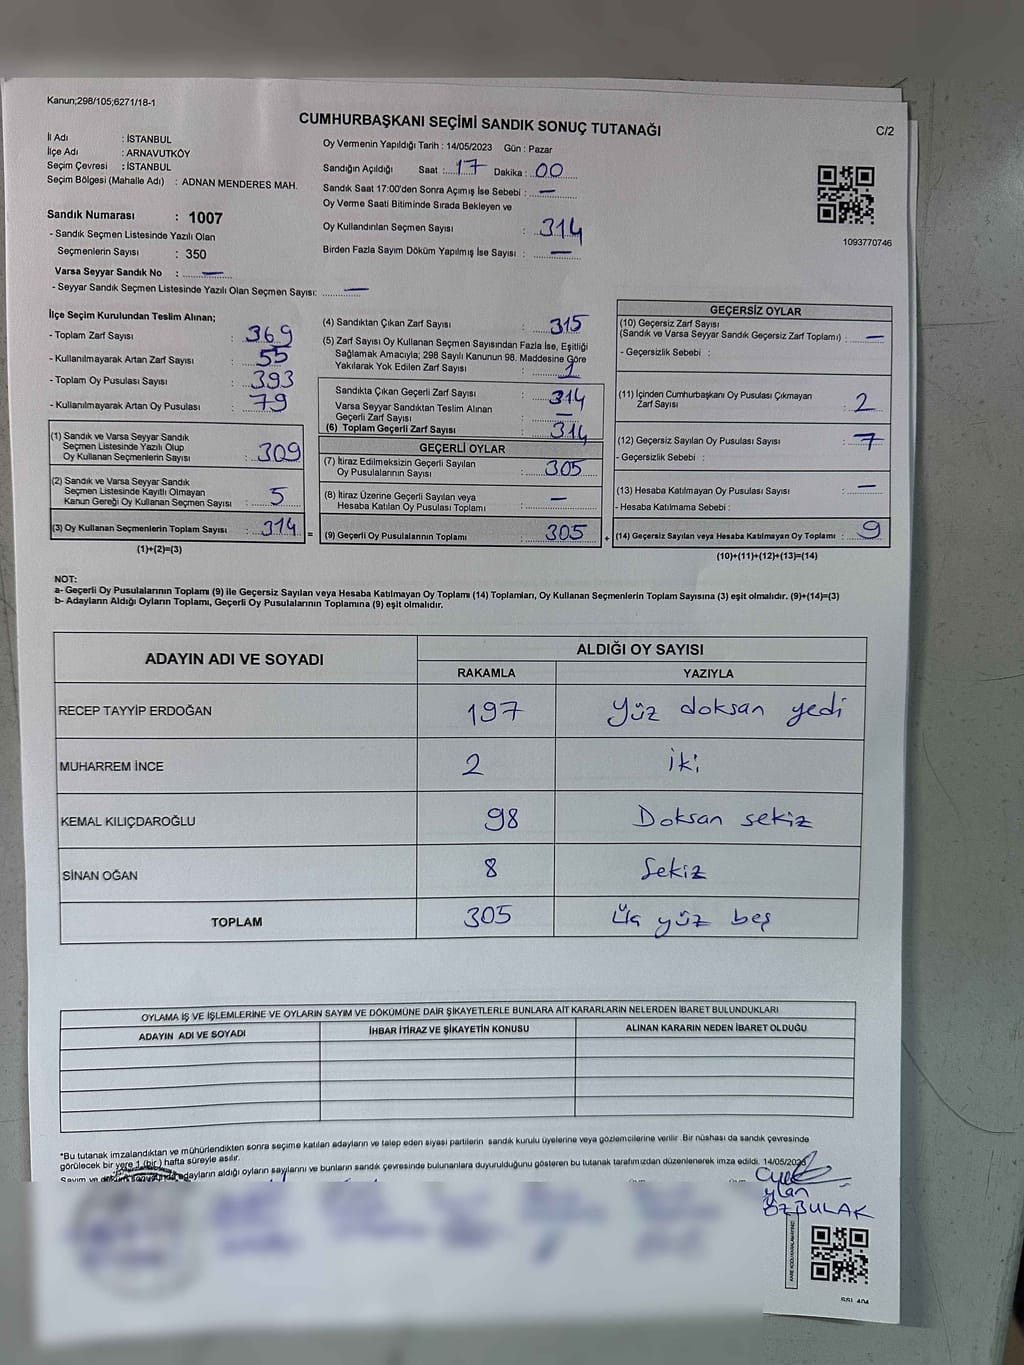 Kanun;298/105;6271/18-1
CUMHURBAŞKANI SEÇİMİ SANDIK SONUÇ TUTANAĞI
C/2
İl Adı : İSTANBUL
İlçe Adı : ARNAVUTKÖY
Seçim Çevresi : İSTANBUL
Seçim Bölgesi (Mahalle Adı) : ADNAN MENDERES MAH.
Sandık Numarası : 1007
- Sandık Seçmen Listesinde Yazılı Olan
Seçmenlerin Sayısı : 350
Varsa Seyyar Sandık No : —
- Seyyar Sandık Seçmen Listesinde Yazılı Olan Seçmen Sayısı: —
Oy Vermenin Yapıldığı Tarih : 14/05/2023 Gün : Pazar
Sandığın Açıldığı Saat : 17 Dakika : 00
Sandık Saat 17:00'den Sonra Açımış İse Sebebi : —
Oy Verme Saati Bitiminde Sırada Bekleyen ve
Oy Kullandırılan Seçmen Sayısı : 314
Birden Fazla Sayım Döküm Yapılmış İse Sayısı : —
1093770746
İlçe Seçim Kurulundan Teslim Alınan;
- Toplam Zarf Sayısı : 369
- Kullanılmayarak Artan Zarf Sayısı : 55
- Toplam Oy Pusulası Sayısı : 393
- Kullanılmayarak Artan Oy Pusulası : 79
(1) Sandık ve Varsa Seyyar Sandık
Seçmen Listesinde Yazılı Olup
Oy Kullanan Seçmenlerin Sayısı : 309
(2) Sandık ve Varsa Seyyar Sandık
Seçmen Listesinde Kayıtlı Olmayan
Kanun Gereği Oy Kullanan Seçmen Sayısı : 5
(3) Oy Kullanan Seçmenlerin Toplam Sayısı : 314 =
(1)+(2)=(3)
(4) Sandıktan Çıkan Zarf Sayısı : 315
(5) Zarf Sayısı Oy Kullanan Seçmen Sayısından Fazla İse, Eşitliği
Sağlamak Amacıyla; 298 Sayılı Kanunun 98. Maddesine Göre
Yakılarak Yok Edilen Zarf Sayısı : 1
Sandıkta Çıkan Geçerli Zarf Sayısı : 314
Varsa Seyyar Sandıktan Teslim Alınan
Geçerli Zarf Sayısı : —
(6) Toplam Geçerli Zarf Sayısı : 314
GEÇERLİ OYLAR
(7) İtiraz Edilmeksizin Geçerli Sayılan
Oy Pusulalarının Sayısı : 305
(8) İtiraz Üzerine Geçerli Sayılan veya
Hesaba Katılan Oy Pusulası Toplamı : —
(9) Geçerli Oy Pusulalarının Toplamı : 305 +
GEÇERSİZ OYLAR
(10) Geçersiz Zarf Sayısı
(Sandık ve Varsa Seyyar Sandık Geçersiz Zarf Toplamı) : —
- Geçersizlik Sebebi :
(11) İçinden Cumhurbaşkanı Oy Pusulası Çıkmayan
Zarf Sayısı : 2
(12) Geçersiz Sayılan Oy Pusulası Sayısı : 7
- Geçersizlik Sebebi :
(13) Hesaba Katılmayan Oy Pusulası Sayısı : —
- Hesaba Katılmama Sebebi :
(14) Geçersiz Sayılan veya Hesaba Katılmayan Oy Toplamı : 9
(10)+(11)+(12)+(13)=(14)
NOT:
a- Geçerli Oy Pusulalarının Toplamı (9) ile Geçersiz Sayılan veya Hesaba Katılmayan Oy Toplamı (14) Toplamları, Oy Kullanan Seçmenlerin Toplam Sayısına (3) eşit olmalıdır. (9)+(14)=(3)
b- Adayların Aldığı Oyların Toplamı, Geçerli Oy Pusulalarının Toplamına (9) eşit olmalıdır.
ADAYIN ADI VE SOYADI
ALDIĞI OY SAYISI
RAKAMLA YAZIYLA
RECEP TAYYİP ERDOĞAN 197 Yüz doksan yedi
MUHARREM İNCE 2 iki
KEMAL KILIÇDAROĞLU 98 Doksan sekiz
SİNAN OĞAN 8 Sekiz
TOPLAM 305 üç yüz beş
OYLAMA İŞ VE İŞLEMLERİNE VE OYLARIN SAYIM VE DÖKÜMÜNE DAİR ŞİKAYETLERLE BUNLARA AİT KARARLARIN NELERDEN İBARET BULUNDUKLARI
ADAYIN ADI VE SOYADI İHBAR İTİRAZ VE ŞİKAYETİN KONUSU ALINAN KARARIN NEDEN İBARET OLDUĞU
*Bu tutanak imzalandıktan ve mühürlendikten sonra seçime katılan adayların ve talep eden siyasi partilerin sandık kurulu üyelerine veya gözlemcilerine verilir. Bir nüshası da sandık çevresinde
görülecek bir yere 1 (bir) hafta süreyle asılır.
adayların aldığı oyların sayılarını ve bunların sandık çevresinde bulunanlara duyurulduğunu gösteren bu tutanak tarafımızdan düzenlenerek imza edildi. 14/05/2023
ÖZBULAK